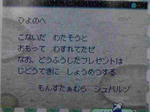 ひよのへ
こないだ わたそうと
おもって わすれてたぜ
なお、どうふうしたプレゼントは
じどうてきに しょうめつする
もんすたぁむら シュバルツ